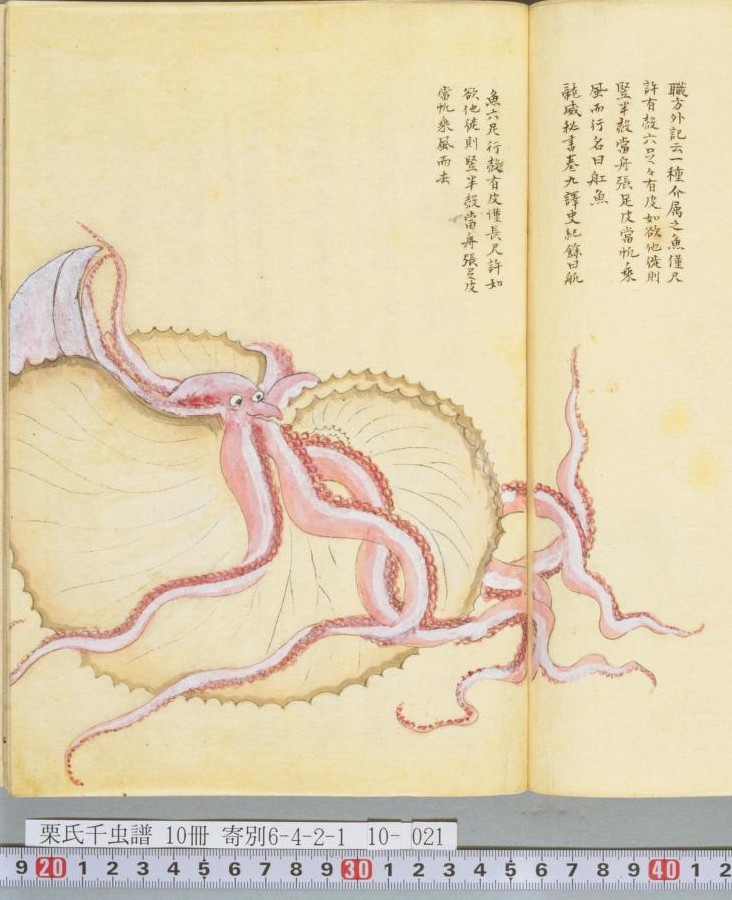 職方外記云一種介属之魚僅尺
許有殻六足々有皮如欲他徙則
竪半殻當舟張足皮當帆乗
風而行名曰舡魚
龍威秘書巻九譯史紀餘曰航
魚六足行殻有皮僅長尺許如
欲他徙則竪半殻當舟張足皮
當帆乗風而去
栗氏千虫譜 10冊 寄別6-4-2-1 10- 021
9 20 1 2 3 4 5 6 7 8 9 30 1 2 3 4 5 6 7 8 9 40 1 2